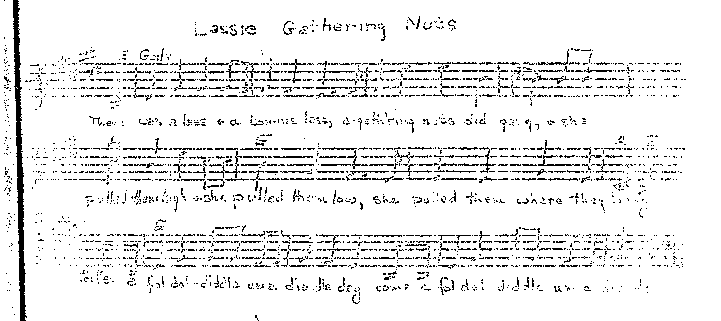 Lassie Gathering Nuts
Gaily
There was a lass & a bonnie lass, a-gathring nuts did gang, & she
pulled them high & she pulled them low, she pulled them where they
fal dal diddle dey come a fal dal diddle